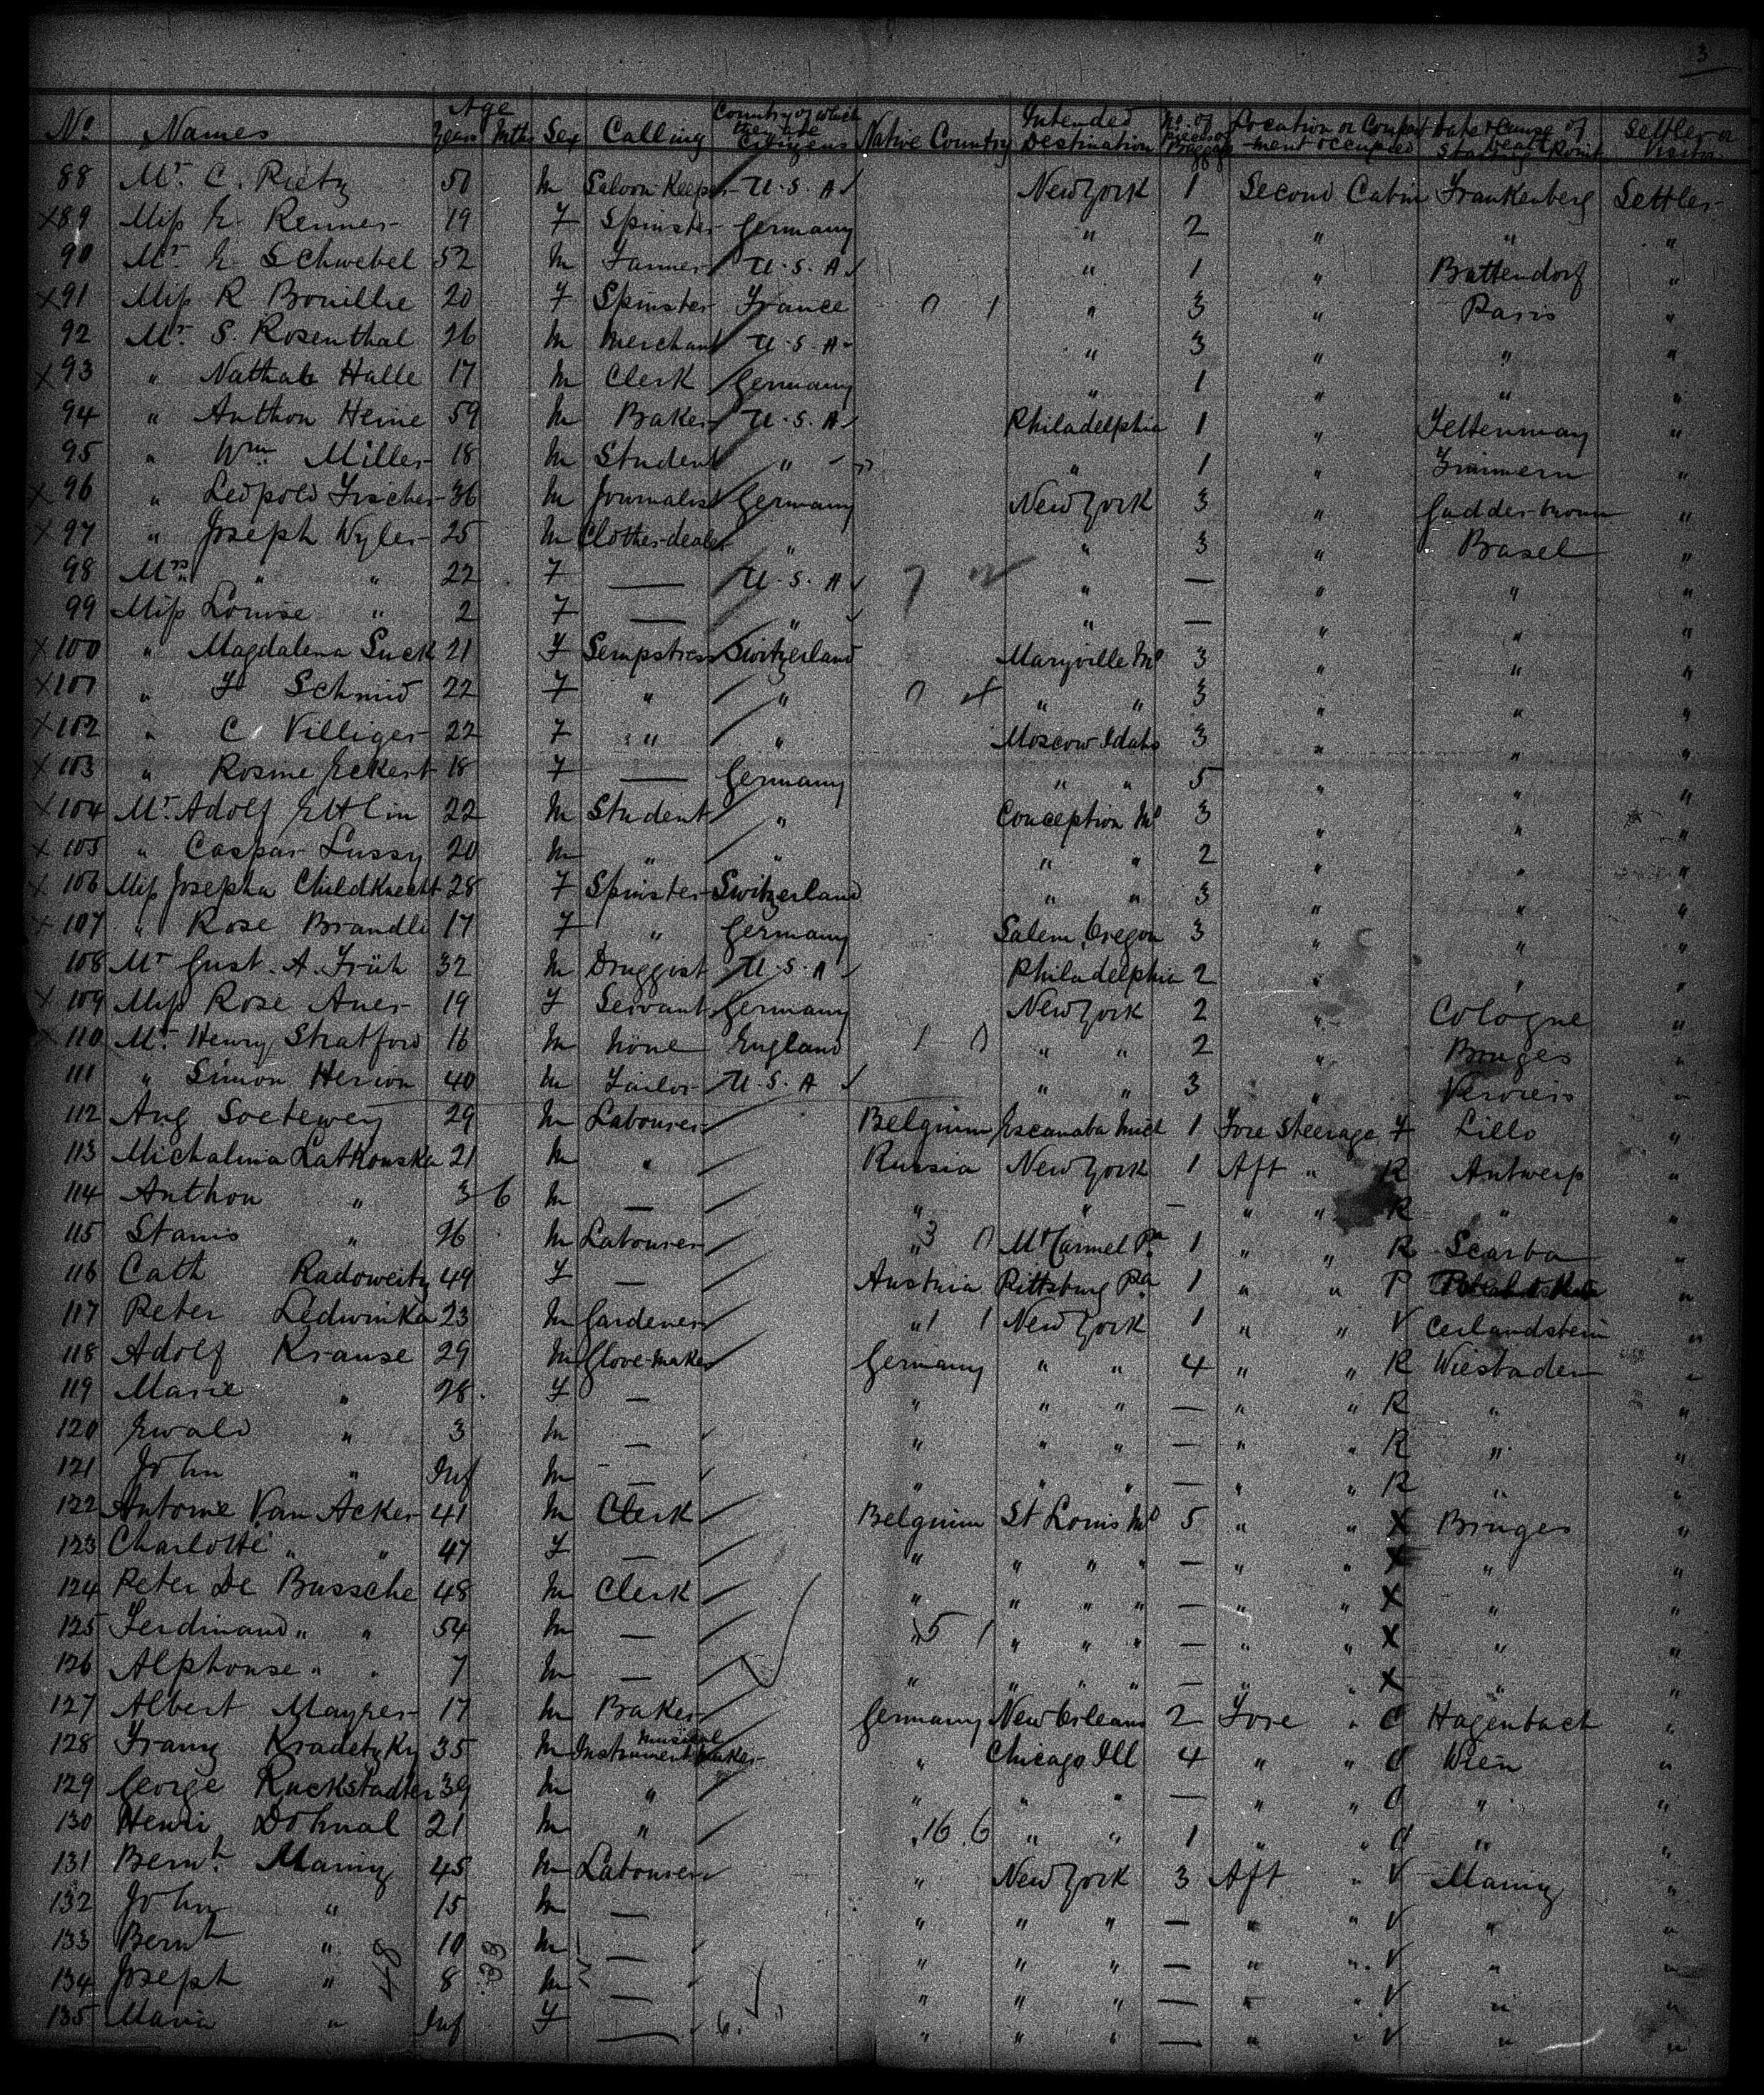 3
No Names Age Years Mths Sex Calling Country of which they are Citizens Native Country Intended Destination No. of pieces of Baggage Location or Compartment occupied Date & Cause of Death Starting Point Settler or Visitor
88 Mr. C. Rietz 50 M Saloon Keeper U.S.A New York 1 Second Cabin Frankenberg Settler
X 89 Miss E. Renner 19 F Spinster Germany " 2 " " "
90 Mr. E. Schwebel 52 M Farmer U.S.A " 1 " Battendorf "
X 91 Miss R Bouillie 20 F Spinster France 0 1 " 3 " Paris "
92 Mr. S. Rosenthal 26 M Merchant U.S.A " 3 " " "
X 93 " Nathale Halle 17 M Clerk Germany " 1 " " "
94 " Anthon Heine 59 M Baker U.S.A Philadelphia 1 " "
95 " Wm Miller 18 M Student " " 1 " "
X 96 " Leopold Fischer 36 M Journalist Germany New York 3 " "
X 97 " Joseph Wyler 25 M Clothes-dealer " " 3 " Basel "
98 Mrs. " " 22 F — U.S.A " — " " "
99 Miss Louise " 2 F — " " — " " "
X 100 " Magdalena Suck 21 F Sempstress Switzerland Maryville Mo 3 " " "
X 101 " F Schmid 22 F " " 0 " " 3 " " "
X 102 " C. Villiger 22 F " " Moscow Idaho 3 " " "
X 103 " Rosine Eckert 18 F — Germany " " 5 " " "
X 104 Mr. Adolf Ettlin 22 M Student " Conception Mo 3 " " "
X 105 " Caspar Lussy 20 M " " " " 2 " " "
X 106 Miss Josepha Childknecht 28 F Spinster Switzerland " " 3 " " "
X 107 " Rose Brandle 17 F " Germany Salem, Oregon 3 " " "
108 Mr Gust. A. Früh 32 M Druggist U.S.A Philadelphia 2 " " "
X 109 Miss Rose Auer 19 F Servant Germany New York 2 " Cologne "
X 110 Mr. Henry Stratford 16 M None England 1 0 " " 2 " Bruges "
111 " Simon Herion 40 M Tailor U.S.A " " 3 " Verviers "
112 Aug Soetewey 29 M Labourer Belgium Escanaba Mich 1 Fore Steerage F Lillo "
113 Michalina Latkouska 21 M " Russia New York 1 Aft " R Antwerp "
114 Anthon " 3 6 M — " " — " " R " "
115 Stanis " 26 M Labourer " 3 0 Mt Carmel Pa 1 " " R Scarba "
116 Cath Radoweitz 49 F — Austria Pittsburg Pa 1 " " P "
117 Peter Ledwinka 23 M Gardener " 1 1 New York 1 " " V Ceilandstein "
118 Adolf Krause 29 M Glove-maker Germany " " 4 " " R Wiesbaden "
119 Marie " 28 F — " " " — " " R " "
120 Ewald " 3 M — " " " — " " R " "
121 John " Inf M — " " " — " " R " "
122 Antoine Van Acker 41 M Clerk Belgium St Louis Mo 5 " " X Bruges "
123 Charlotte " " 47 F — " " " " — " " X " "
124 Peter De Bussche 48 M Clerk " " " " — " " X " "
125 Ferdinand " " 54 M — " 5 1 " " " — " " X " "
126 Alphonse " " 7 M — " " " " — " " X " "
127 Albert Mayher 17 M Baker Germany New Orleans 2 Fore " C Hagenbach "
128 Franz Kradetzky 35 M Musical Instrument maker " Chicago Ill 4 " " C Wien "
129 George Ruckstadter 39 M " " " " — " " C " "
130 Henri Dohnal 21 M " " 16. 6 " " 1 " " C " "
131 Bernh. Mainz 45 M Labourer " New York 3 Aft " V Mainz "
132 John " 15 M — " " " — " " V " "
133 Bernh " 10 M — " " " — " " V " "
134 Joseph " 8 M — " " " — " " V " "
135 Maria " Inf F — " " " — " " V " "